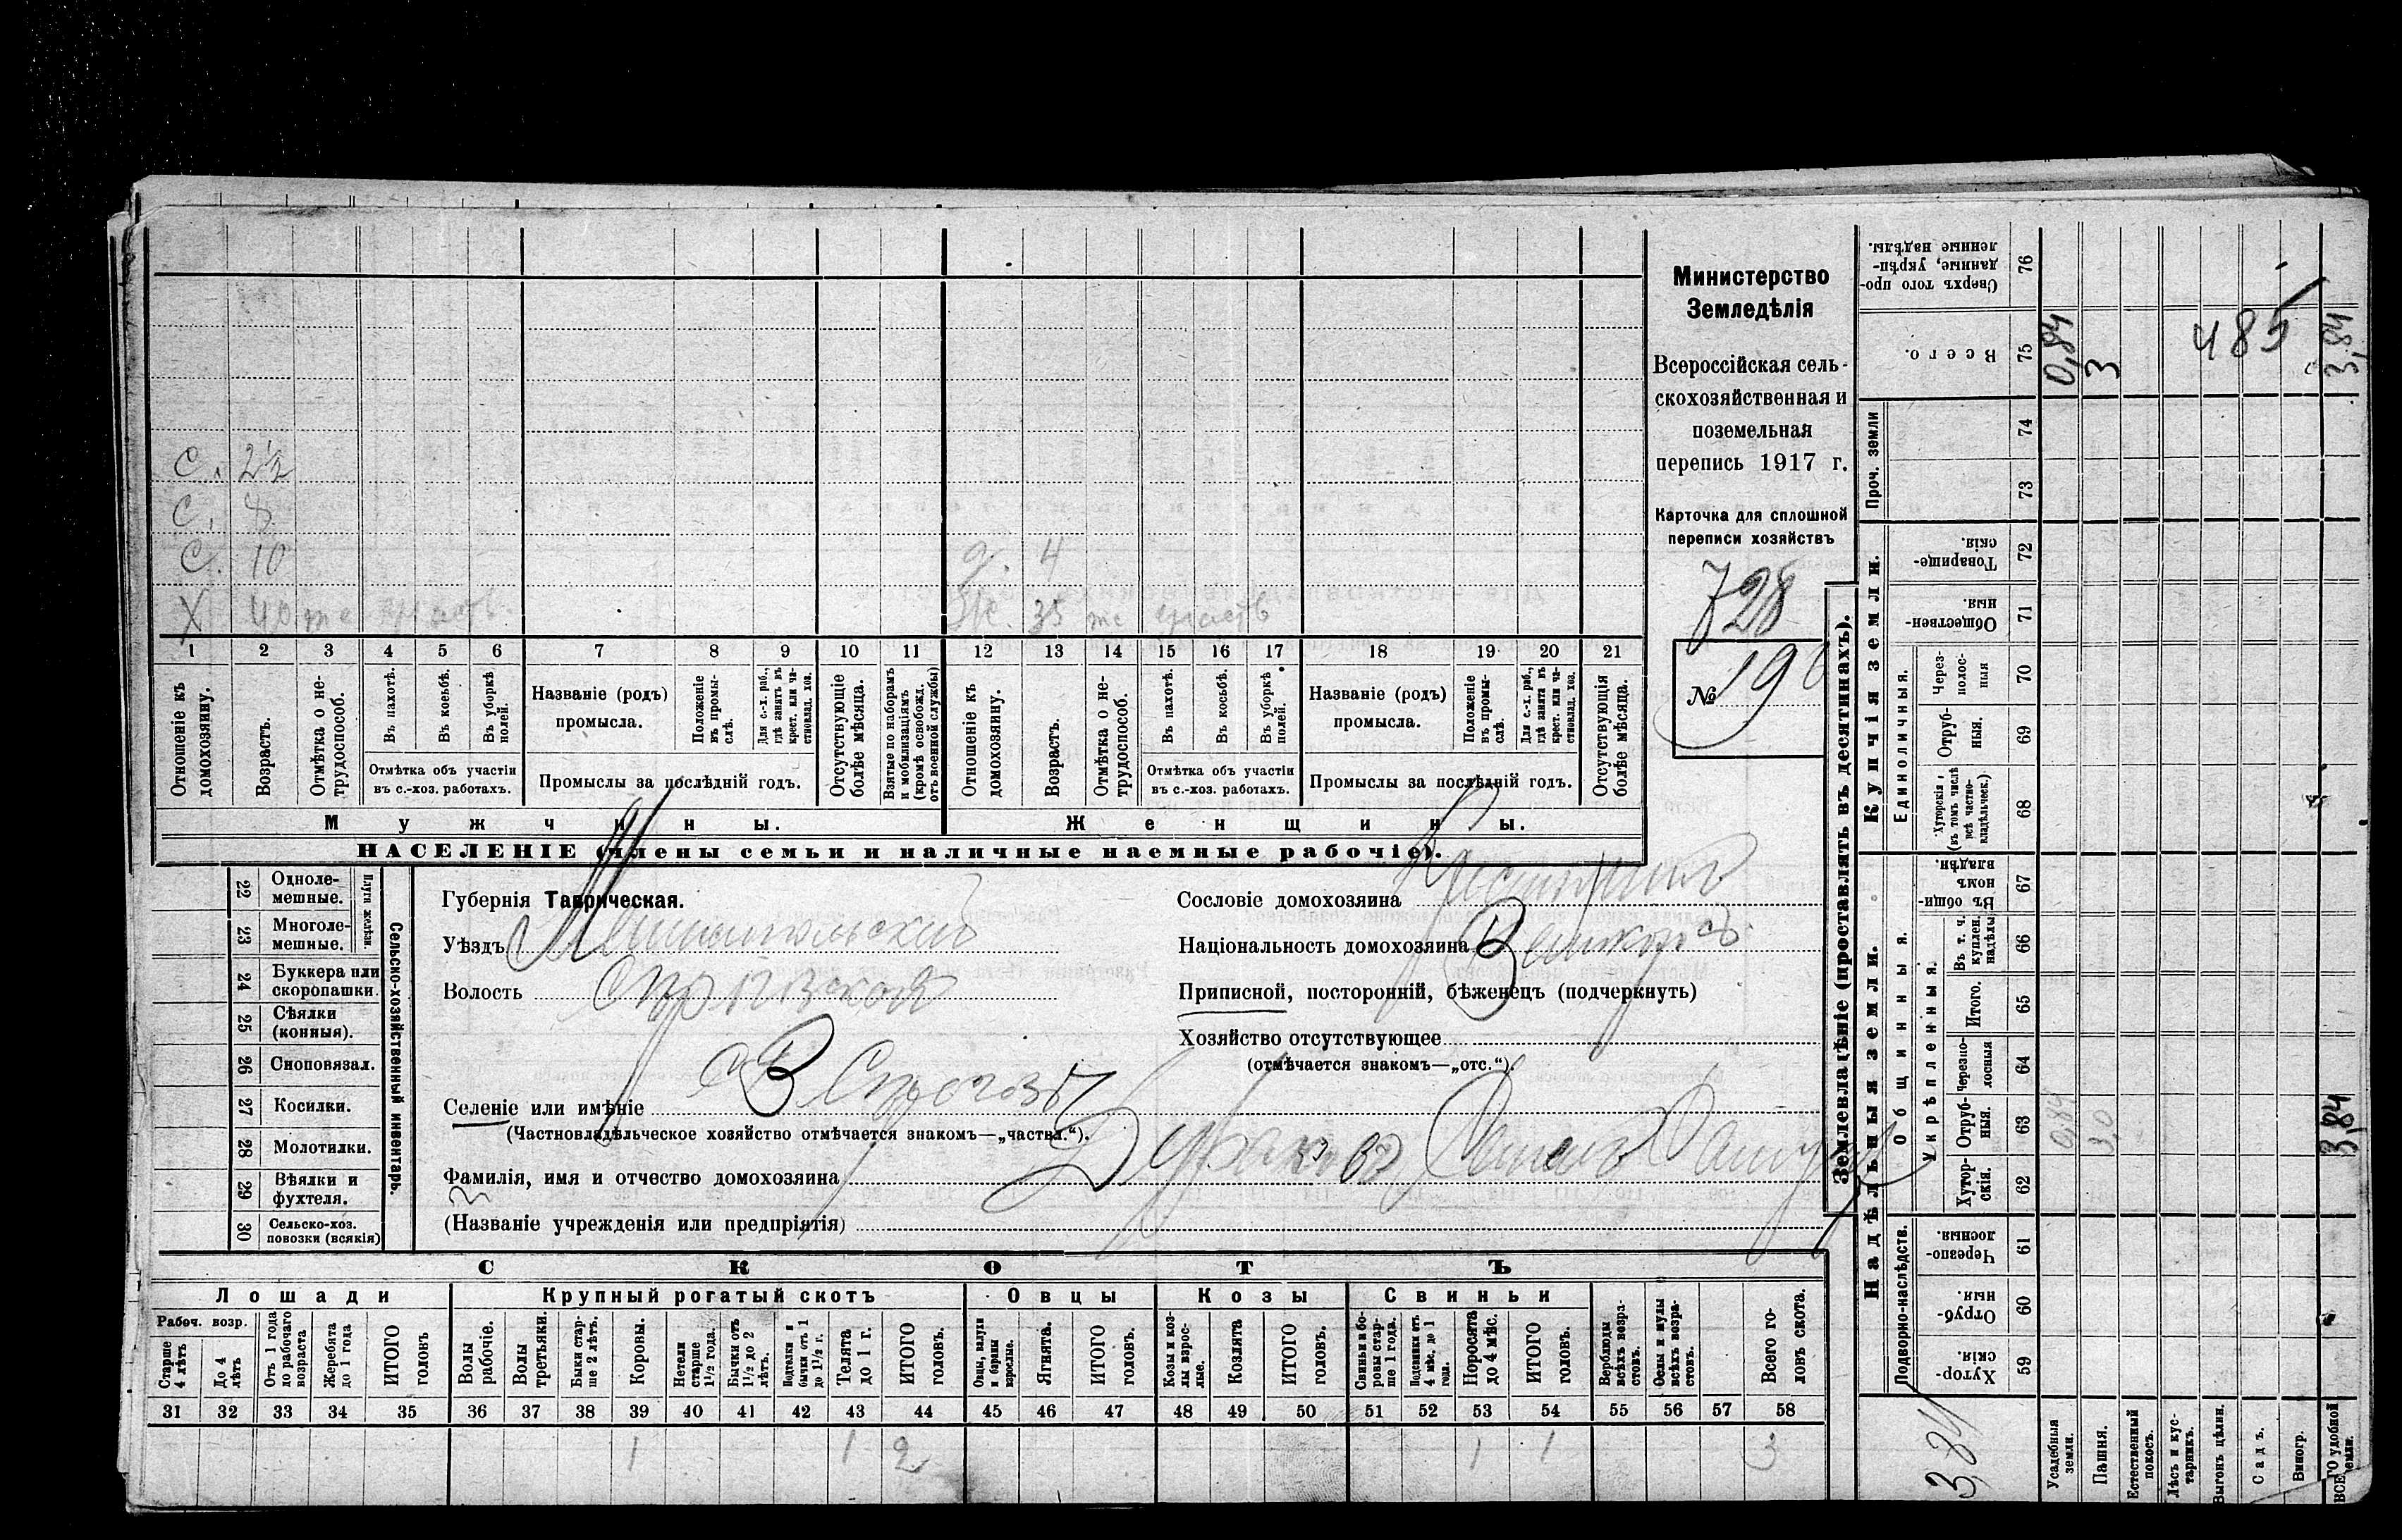 С. 2½
С. 8
С. 10 д. 4
Х 40 не участв. Ж. 35 не участв
1 2 3 4 5 6 7 8 9 10 11 12 13 14 15 16 17 18 19 20 21
Отношеніе къ домохозяину.
Возрастъ.
Отмѣтка о не-
трудоспособ.
Въ пахотѣ.
Въ косьбѣ.
Въ уборкѣ полей.
Отмѣтка объ участіи
въ с.-хоз. работахъ.
Названіе (родъ)
промысла.
Положеніе въ промы-
слѣ.
Для с.-х. раб., гдѣ занятъ въ крест. или ча-
стновлад. хоз.
Промыслы за послѣдній годъ.
Отсутствующіе болѣе мѣсяца.
Взятые по наборамъ и мобилизаціямъ (кромѣ освобожд. отъ военной службы)
Отношеніе къ домохозяину.
Возрастъ.
Отмѣтка о не-
трудоспособ.
Въ пахотѣ.
Въ косьбѣ.
Въ уборкѣ полей.
Отмѣтка объ участіи
въ с.-хоз. работахъ.
Названіе (родъ)
промысла.
Положеніе въ промы-
слѣ.
Для с.-х. раб., гдѣ занята въ крест. или ча-
стновлад. хоз.
Промыслы за послѣдній годъ.
Отсутствующія болѣе мѣсяца.
Мужчины.
Женщины.
НАСЕЛЕНІЕ (члены семьи и наличные наемные рабочіе).
Министерство
Земледѣлія
Всероссійская сель-
скохозяйственная и
поземельная
перепись 1917 г.
Карточка для сплошной
переписи хозяйствъ
728
№ 190
22 Одноле-
мешные.
23 Многоле-
мешные.
Плуги желѣзн.
24 Буккера или
скоропашки.
25 Сѣялки
(конныя).
26 Сноповязал.
27 Косилки.
28 Молотилки.
29 Вѣялки и
фухтеля.
30 Сельско-хоз.
повозки (всякія)
Сельско-хозяйственный инвентарь.
Губернія Таврическая.
Уѣздъ Мелитопольский
Волость
Селеніе или имѣніе
(Частновладѣльческое хозяйство отмѣчается знакомъ—„частвл.“).
Фамилія, имя и отчество домохозяина
(Названіе учрежденія или предпріятія)
Сословіе домохозяина
Національность домохозяина
Приписной, посторонній, бѣженецъ (подчеркнуть)
Хозяйство отсутствующее
(отмѣчается знакомъ—„отс.“).
СКОТЪ
Лошади
Крупный рогатый скотъ
Овцы
Козы
Свиньи
Рабоч. возр.
Старше 4 лѣтъ
До 4 лѣтъ
Отъ 1 года до рабочаго возраста
Жеребята до 1 года
ИТОГО головъ
Волы рабочіе.
Волы третьяки.
Быки стар-
ше 2 лѣтъ.
Коровы.
Нетели старше 1½ года.
Бычки отъ 1½ до 2 лѣтъ.
Подтелки и бычки отъ 1 до 1½ г.
Телята до 1 г.
ИТОГО головъ.
Овцы, валухи и бараны взрослые.
Ягнята.
ИТОГО головъ.
Козы и коз-
лы взрос-
лые.
Козлята
ИТОГО головъ.
Свиньи и бо-
ровы стар-
ше 1 года.
Подсвинки отъ 4 мѣс. до 1 года.
Поросята до 4 мѣс.
ИТОГО головъ.
Верблюды всѣхъ возра-
стовъ.
Ослы и мулы всѣхъ возра-
стовъ.
Всего го-
ловъ скота.
31 32 33 34 35 36 37 38 39 40 41 42 43 44 45 46 47 48 49 50 51 52 53 54 55 56 57 58
1 1 2 1 1 3
Землевладѣніе (проставлять въ десятинахъ).
Надѣльныя земли.
Купчія земли.
Проч. земли
Подворно-наслѣдств.
Общинныя.
Укрѣпленныя.
Единоличныя.
Хутор-
скія. 59
Отруб-
ныя. 60
Черезпо-
лосныя. 61
Хутор-
скія. 62
Отруб-
ныя. 63
Черезпо-
лосныя 64
Итого. 65
Въ т. ч. куплен. надѣлы 66
Въ общи-
номъ владѣн. 67
Хуторскія (въ томъ числѣ всѣ частно-
владѣльческ.) 68
Отруб-
ныя. 69
Через-
полос-
ныя 70
Обществен-
ныя 71
Товарище-
скія. 72
73
74
Всего. 75
Сверхъ того про-
данные, укрѣп-
ленные надѣлы. 76
Усадебныя земли.
Пашня.
Естественный покосъ.
Лѣсъ и кус-
тарникъ.
Выгонъ цѣлин.
Садъ.
Виногр.
ВСЕГО удобной земли.
0,84
3,0
3,84
0,84
3
485
3,84
3,84